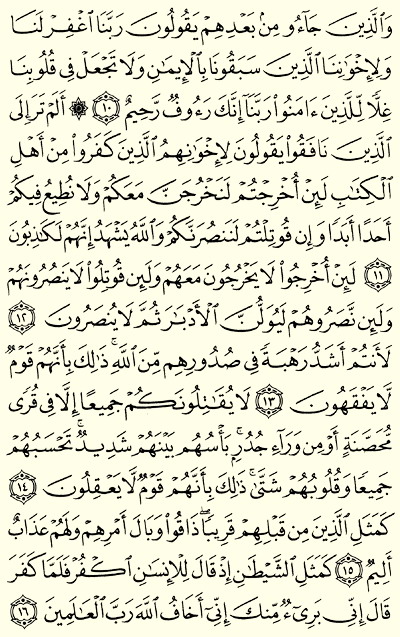 وَالَّذِينَ جَآءُو مِنۢ بَعْدِهِمْ يَقُولُونَ رَبَّنَا ٱغْفِرْ لَنَا
وَلِإِخْوَٰنِنَا ٱلَّذِينَ سَبَقُونَا بِٱلْإِيمَٰنِ وَلَا تَجْعَلْ فِى قُلُوبِنَا
غِلًّا لِّلَّذِينَ ءَامَنُوا۟ رَبَّنَآ إِنَّكَ رَءُوفٌ رَّحِيمٌ ١٠ ۞ أَلَمْ تَرَ إِلَى
ٱلَّذِينَ نَافَقُوا۟ يَقُولُونَ لِإِخْوَٰنِهِمُ ٱلَّذِينَ كَفَرُوا۟ مِنْ أَهْلِ
ٱلْكِتَٰبِ لَئِنْ أُخْرِجْتُمْ لَنَخْرُجَنَّ مَعَكُمْ وَلَا نُطِيعُ فِيكُمْ
أَحَدًا أَبَدًا وَإِن قُوتِلْتُمْ لَنَنصُرَنَّكُمْ وَٱللَّهُ يَشْهَدُ إِنَّهُمْ لَكَٰذِبُونَ
١١ لَئِنْ أُخْرِجُوا۟ لَا يَخْرُجُونَ مَعَهُمْ وَلَئِن قُوتِلُوا۟ لَا يَنصُرُونَهُمْ
وَلَئِن نَّصَرُوهُمْ لَيُوَلُّنَّ ٱلْأَدْبَٰرَ ثُمَّ لَا يُنصَرُونَ ١٢
لَأَنتُمْ أَشَدُّ رَهْبَةً فِى صُدُورِهِم مِّنَ ٱللَّهِ ۚ ذَٰلِكَ بِأَنَّهُمْ قَوْمٌ
لَّا يَفْقَهُونَ ١٣ لَا يُقَٰتِلُونَكُمْ جَمِيعًا إِلَّا فِى قُرًى
مُّحَصَّنَةٍ أَوْ مِن وَرَآءِ جُدُرٍۭ ۚ بَأْسُهُم بَيْنَهُمْ شَدِيدٌ ۚ تَحْسَبُهُمْ
جَمِيعًا وَقُلُوبُهُمْ شَتَّىٰ ۚ ذَٰلِكَ بِأَنَّهُمْ قَوْمٌ لَّا يَعْقِلُونَ ١٤
كَمَثَلِ ٱلَّذِينَ مِن قَبْلِهِمْ قَرِيبًا ۖ ذَاقُوا۟ وَبَالَ أَمْرِهِمْ وَلَهُمْ عَذَابٌ
أَلِيمٌ ١٥ كَمَثَلِ ٱلشَّيْطَٰنِ إِذْ قَالَ لِلْإِنسَٰنِ ٱكْفُرْ فَلَمَّا كَفَرَ
قَالَ إِنِّى بَرِىٓءٌ مِّنكَ إِنِّىٓ أَخَافُ ٱللَّهَ رَبَّ ٱلْعَٰلَمِينَ ١٦